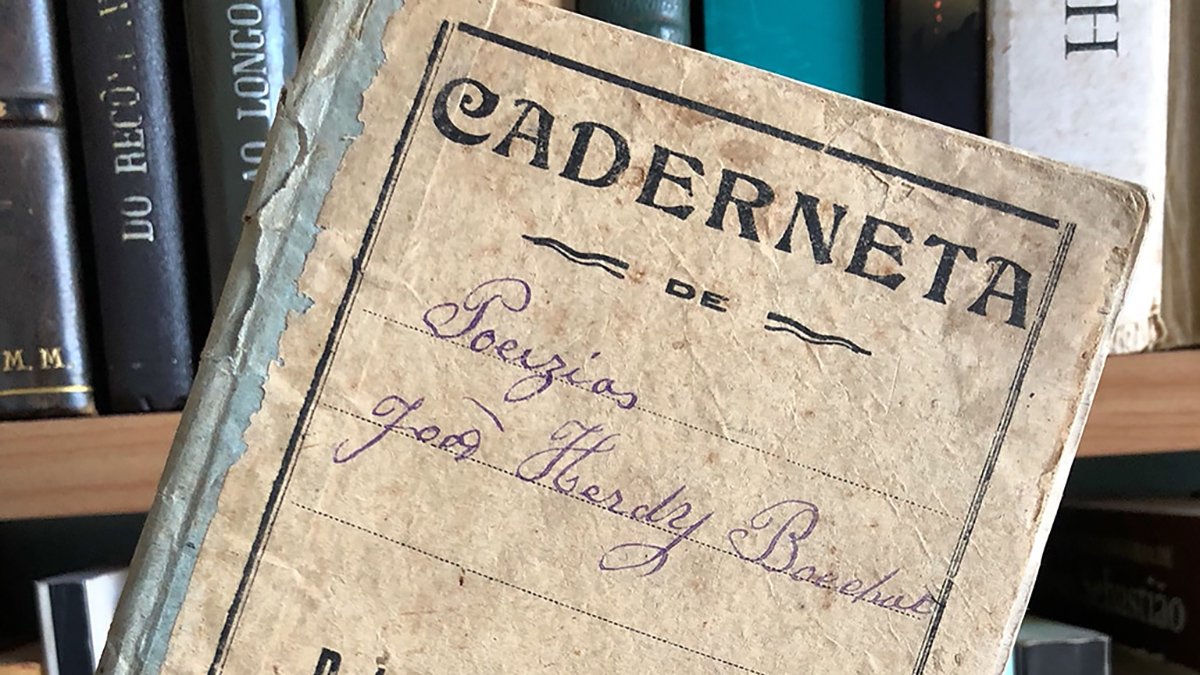 DO RECÔN
AO LONGO
H
M. M.
CADERNETA
DE
Poezias
João Herdy Boechat